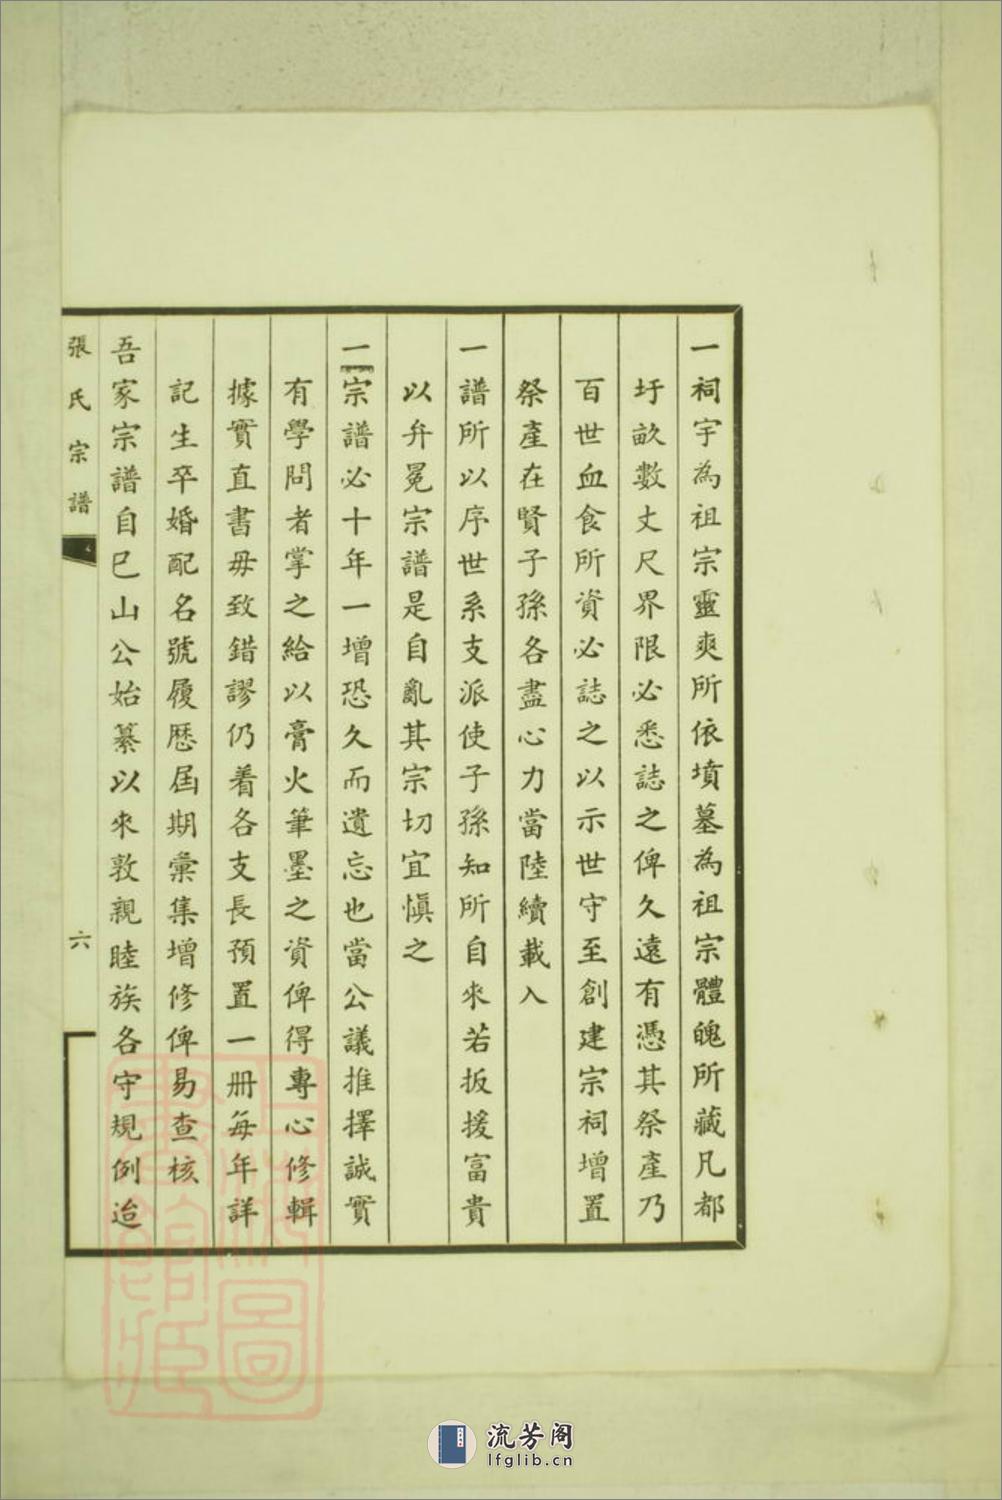 一祠宇為祖宗靈爽所依墳墓為祖宗體魄所藏凡都
圩畝數丈尺界限必悉誌之俾久遠有憑其祭產乃
百世血食所資必誌之以示世守至創建宗祠增置
祭產在賢子孫各盡心力當陸續載入
一譜所以序世系支派使子孫知所自來若扳援富貴
以弁冕宗譜是自亂其宗切宜慎之
一宗譜必十年一增恐久而遺忘也當公議推擇誠實
有學問者掌之給以膏火筆墨之資俾得專心修輯
據實直書毋致錯謬仍着各支長預置一冊每年詳
記生卒婚配名號履歷屆期彙集增修俾易查核
吾家宗譜自巳山公始纂以來敦親睦族各守規例迨
張氏宗譜
六
流芳阁
lfglib.cn